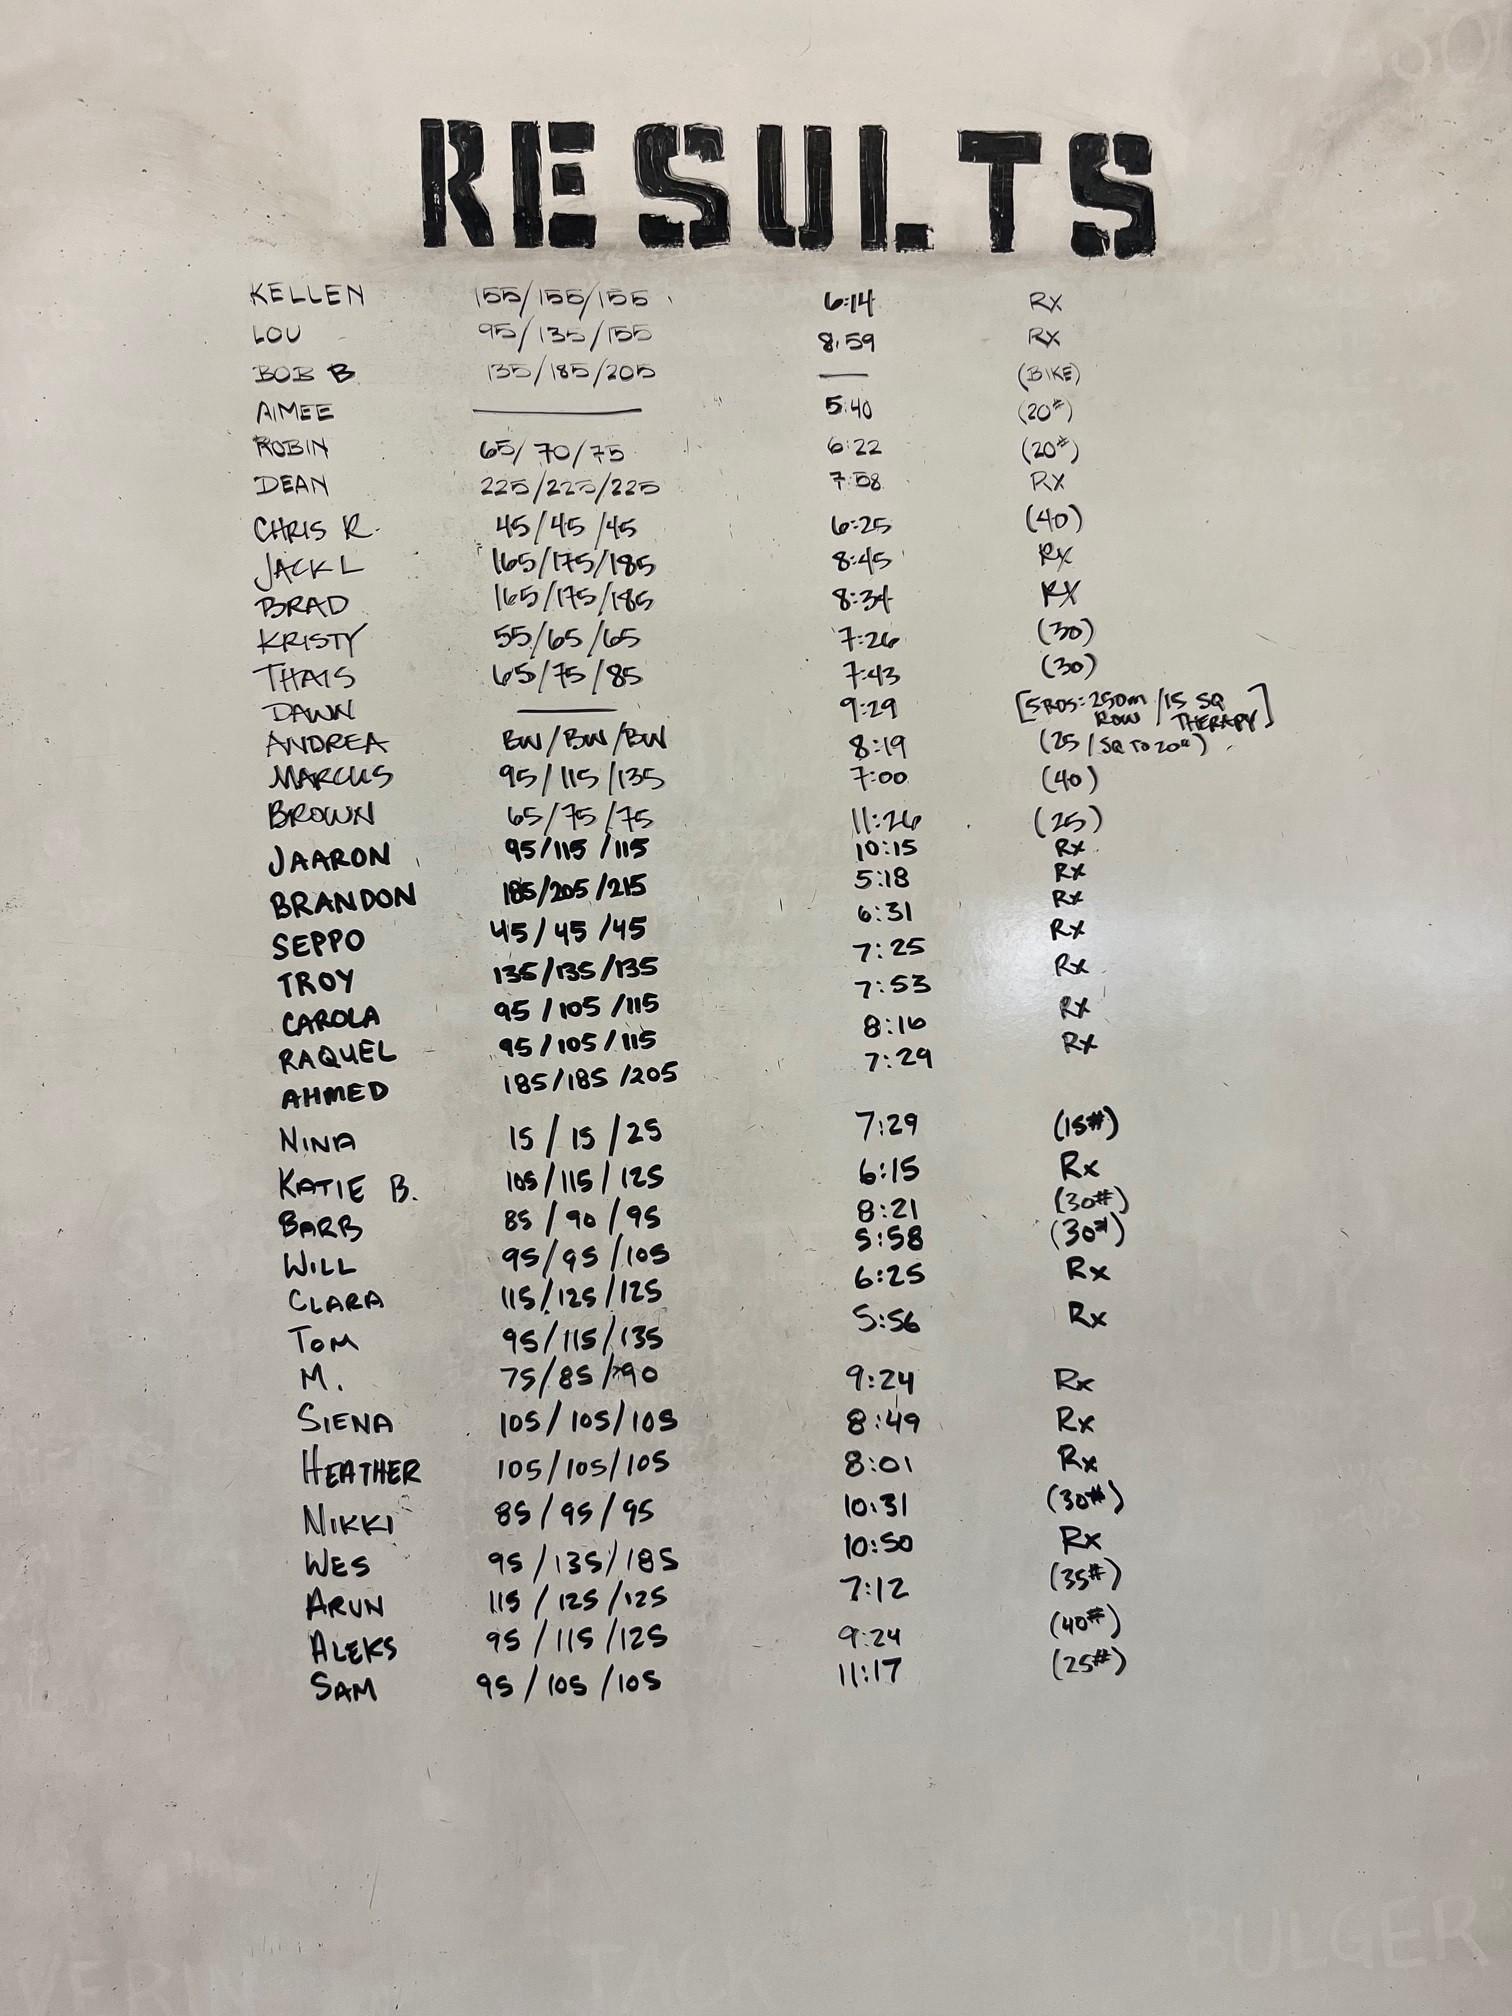 RESULTS
KELLEN 155/155/155 6:14 Rx
LOU 95/135/155 8:59 Rx
BOB B 135/185/205 — (BIKE)
AIMEE — 5:40 (20#)
ROBIN 65/70/75 6:22 (20#)
DEAN 225/225/225 7:58 Rx
CHRIS R. 45/45/45 6:25 (40)
JACK L 165/175/185 8:45 Rx
BRAD 165/175/185 8:34 RX
KRISTY 55/65/65 7:26 (30)
THAIS 65/75/85 7:43 (30)
DAWN — 9:29 [5 RDS: 250m ROW / 15 SQ THERAPY]
ANDREA BW/BW/BW 8:19 (25 / SQ TO 20")
MARCUS 95/115/135 7:00 (40)
BROWN 65/75/75 11:26 (25)
JAARON 95/115/115 10:15 Rx
BRANDON 185/205/215 5:18 Rx
SEPPO 45/45/45 6:31 Rx
TROY 135/135/135 7:25 Rx
CAROLA 95/105/115 7:53 Rx
RAQUEL 95/105/115 8:16 Rx
AHMED 185/185/205 7:29 Rx
NINA 15/15/25 7:29 (15#)
KATIE B. 105/115/125 6:15 Rx
BARB 85/90/95 8:21 (30#)
WILL 95/95/105 5:58 (30#)
CLARA 115/125/125 6:25 Rx
TOM 95/115/135 5:56 Rx
M. 75/85/90 9:24 Rx
SIENA 105/105/105 8:49 Rx
HEATHER 105/105/105 8:01 Rx
NIKKI 85/95/95 10:31 (30#)
WES 95/135/185 10:50 Rx
ARUN 115/125/125 7:12 (35#)
ALEKS 95/115/125 9:24 (40#)
SAM 95/105/105 11:17 (25#)
BULGER